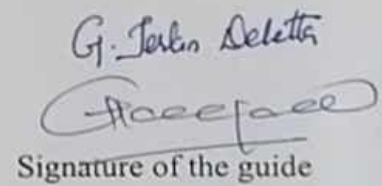 G. Jerlin Deletta
Signature of the guide